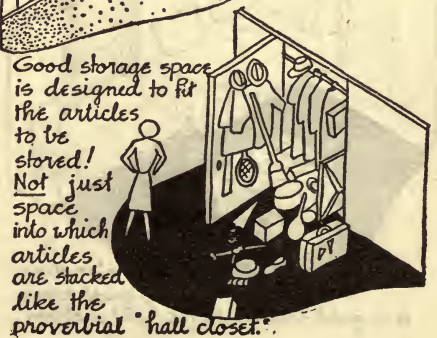 Good storage space
is designed to fit
the articles
to be
stored!
Not just
space
into which
articles
are stacked
like the
proverbial "hall closet."